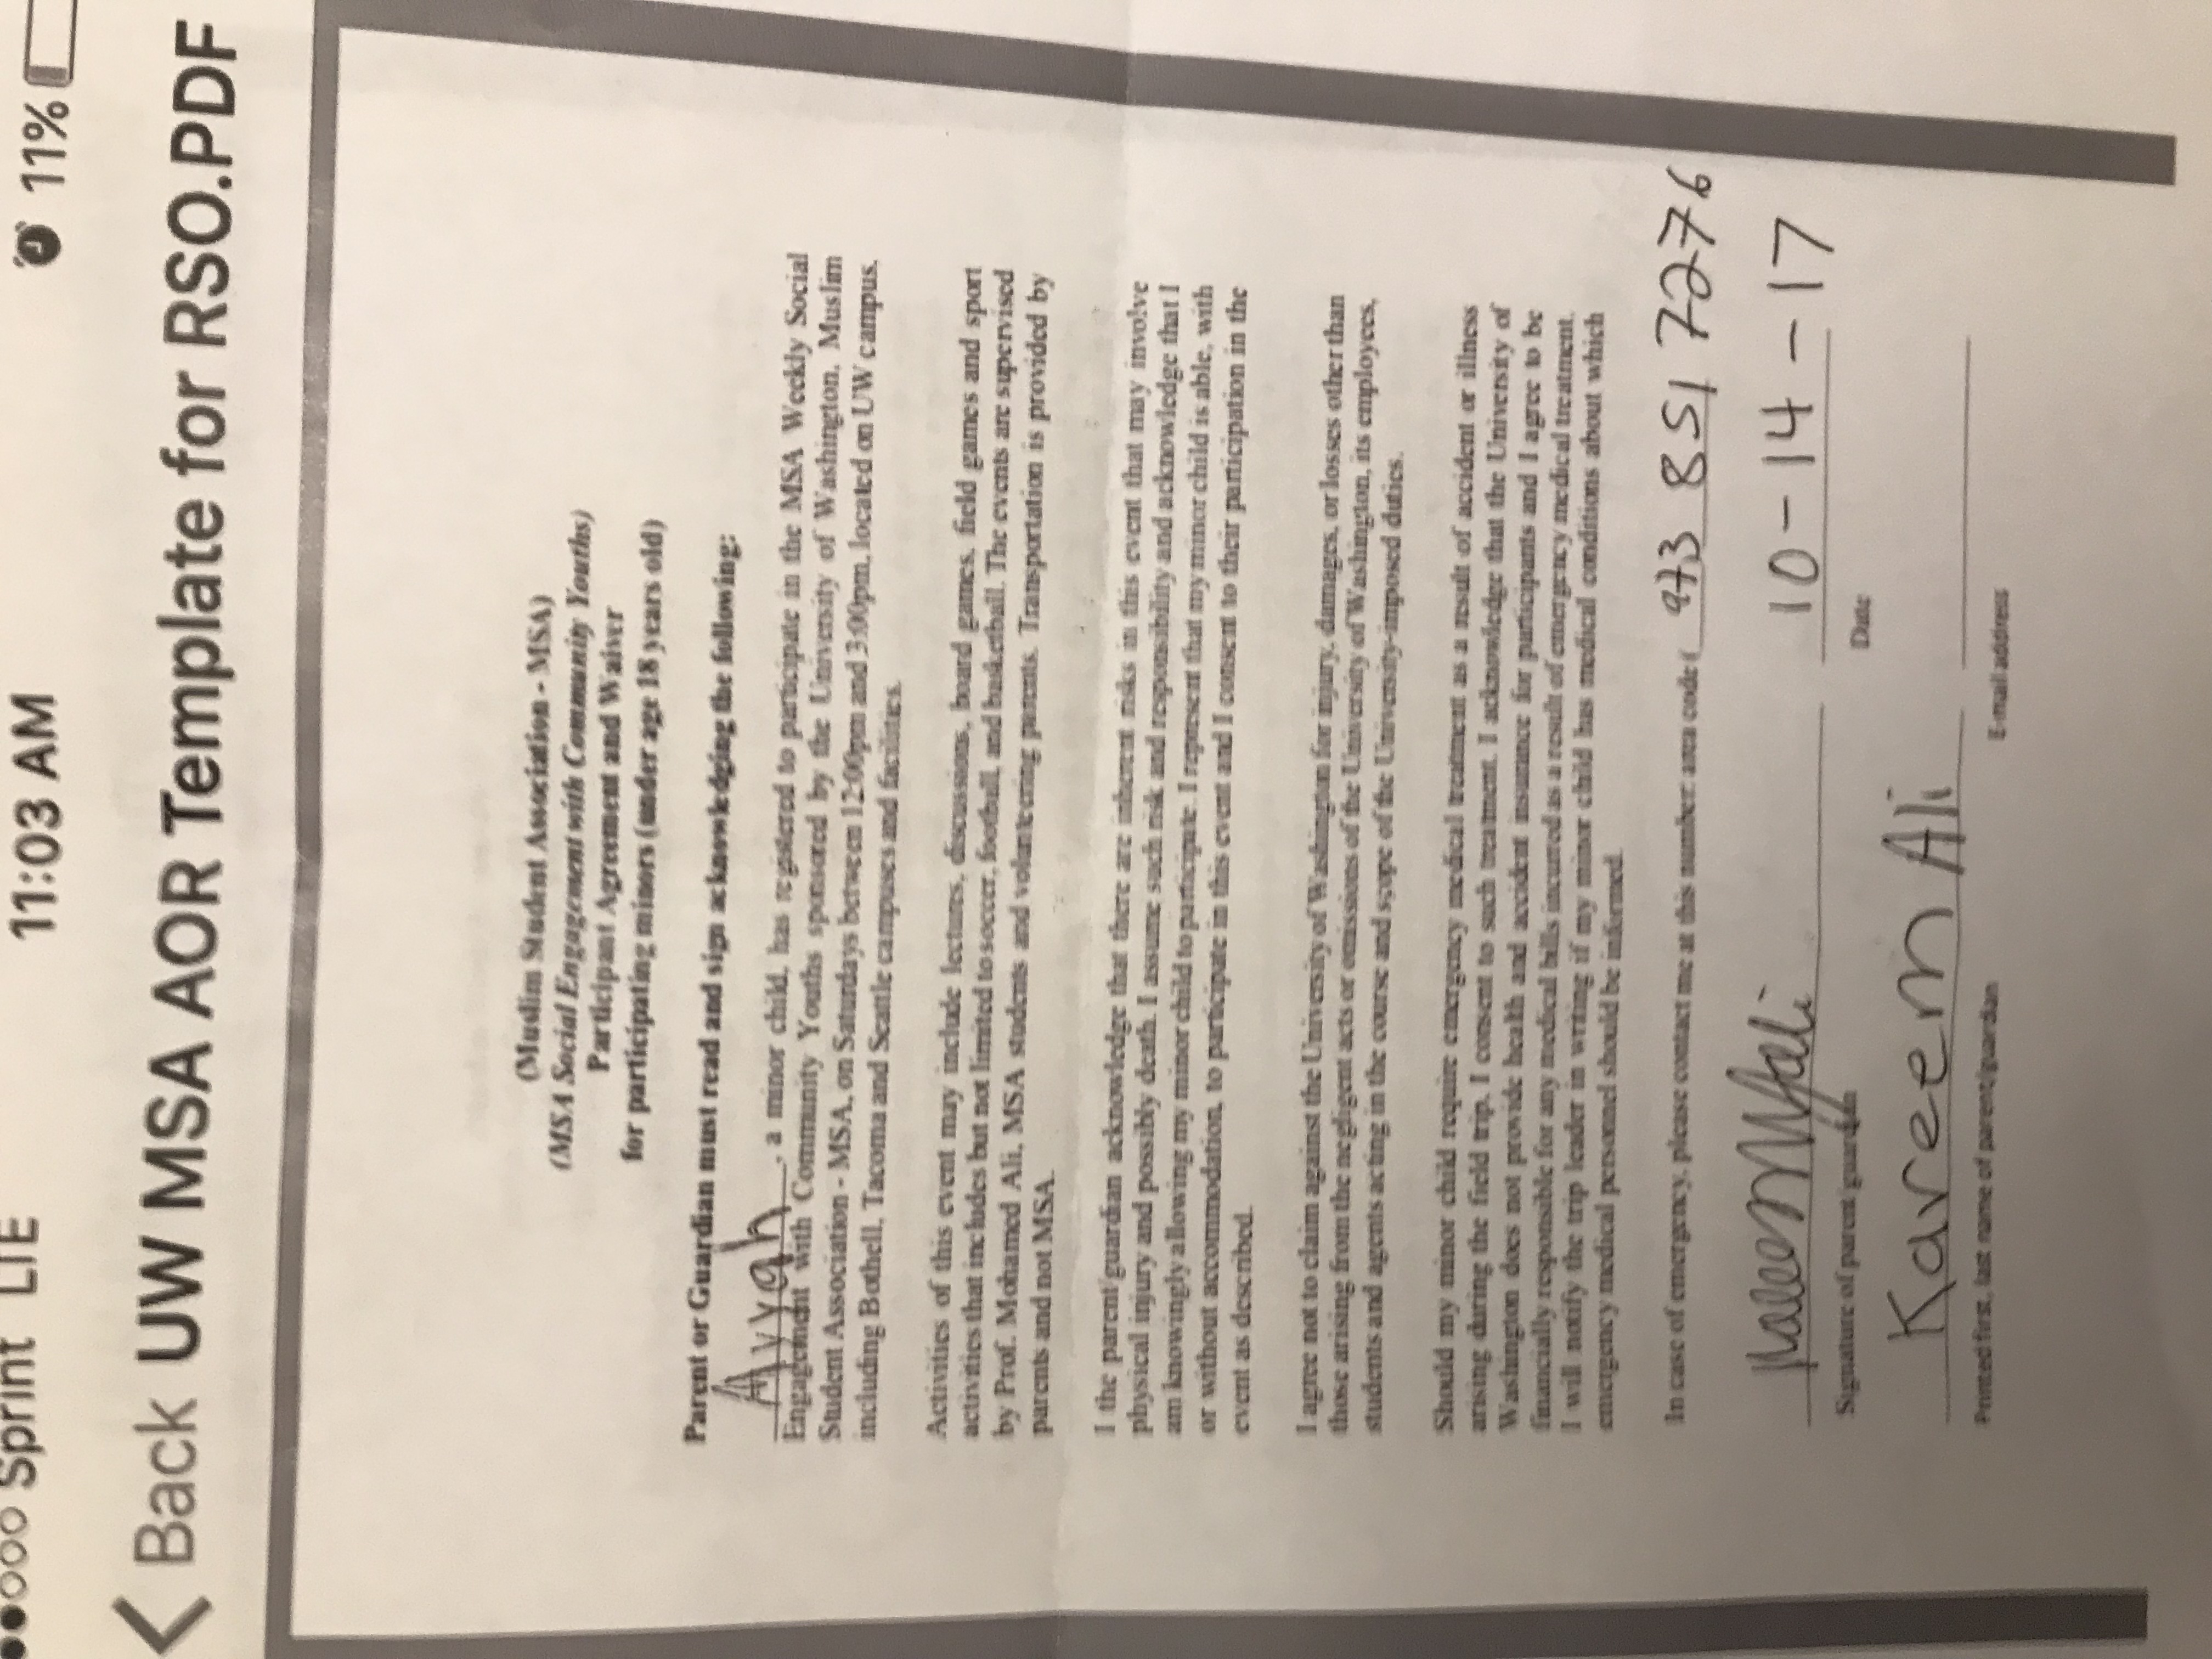 Sprint LTE 11:03 AM 11%
Back UW MSA AOR Template for RSO.PDF
(Muslim Student Association - MSA)
(MSA Social Engagement with Community Youths)
Participant Agreement and Waiver
for participating minors (under age 18 years old)
Parent or Guardian must read and sign acknowledging the following:
, a minor child, has registered to participate in the MSA Weekly Social
Engagement with Community Youths sponsored by the University of Washington, Muslim
Student Association - MSA, on Saturdays between 12:00pm and 3:00pm, located on UW campus,
including Bothell, Tacoma and Seattle campuses and facilities.
Activities of this event may include lectures, discussions, board games, field games and sport
activities that includes but not limited to soccer, football, and basketball. The events are supervised
by Prof. Mohamed Ali, MSA students and volunteering parents. Transportation is provided by
parents and not MSA.
I the parent/guardian acknowledge that there are inherent risks in this event that may involve
physical injury and possibly death. I assume such risk and responsibility and acknowledge that I
am knowingly allowing my minor child to participate. I represent that my minor child is able, with
or without accommodation, to participate in this event and I consent to their participation in the
event as described.
I agree not to claim against the University of Washington for injury, damages, or losses other than
those arising from the negligent acts or omissions of the University of Washington, its employees,
students and agents acting in the course and scope of the University-imposed duties.
Should my minor child require emergency medical treatment as a result of accident or illness
arising during the field trip, I consent to such treatment. I acknowledge that the University of
Washington does not provide health and accident insurance for participants and I agree to be
financially responsible for any medical bills incurred as a result of emergency medical treatment.
I will notify the trip leader in writing if my minor child has medical conditions about which
emergency medical personnel should be informed.
In case of emergency, please contact me at this number: area code ( 973 851 7276
10-14-17
Signature of parent/guardian Date
Kareem Ali
Printed first, last name of parent/guardian E-mail address